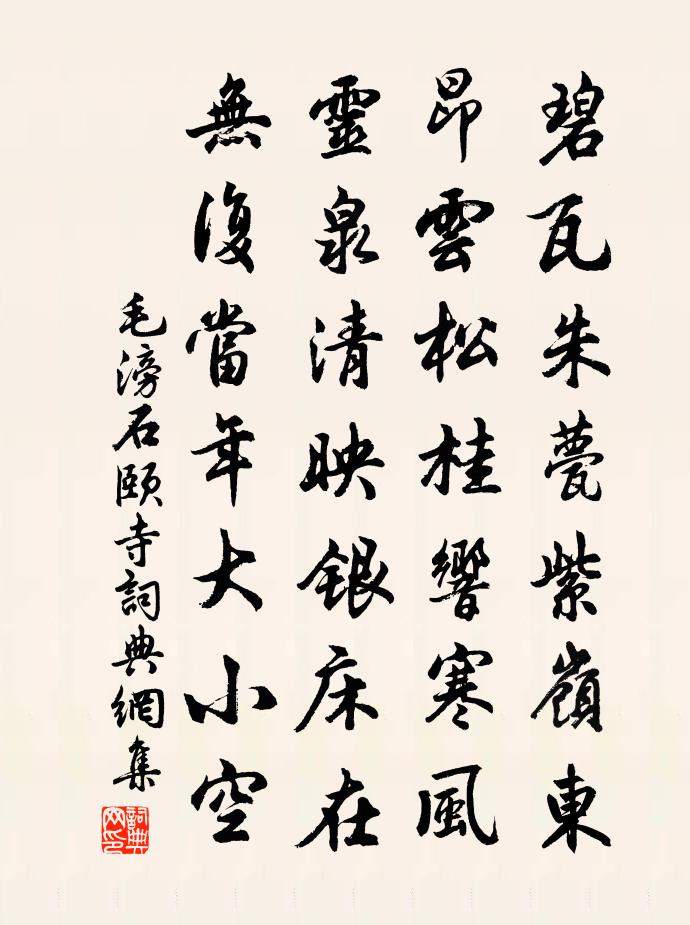 碧瓦朱甍紫嶺東
昂雲松桂響寒風
靈泉清映銀床在
無復當年大小空
毛滂石頤寺詞典網集
詞典網印